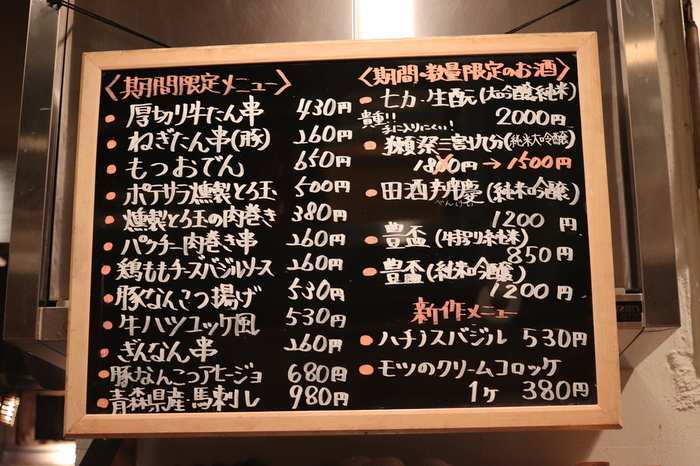 〈期間限定メニュー〉
・厚切り牛たん串 430円
・ねぎたん串(豚) 260円
・もつおでん 650円
・ポテサラ燻製とろ玉 500円
・燻製とろ玉の肉巻き 380円
・パクチー肉巻き串 260円
・鶏ももチーズバジルソース 260円
・豚なんこつ揚げ 530円
・牛ハツユッケ風 530円
・ぎんなん串 260円
・豚なんこつアヒージョ 680円
・青森県産・馬刺し 980円
〈期間・数量限定のお酒〉
・七力・生酛(大吟醸純米)
2000円
貴重!!
手に入りにくい!
・獺祭三割九分(純米大吟醸)
1800円→1500円
・田酒弁慶(純米吟醸)
べんけい
1200円
・豊盃(特別純米)
850円
・豊盃(純米吟醸)
1200円
新作メニュー
・ハチノスバジル 530円
・モツのクリームコロッケ
1ヶ 380円